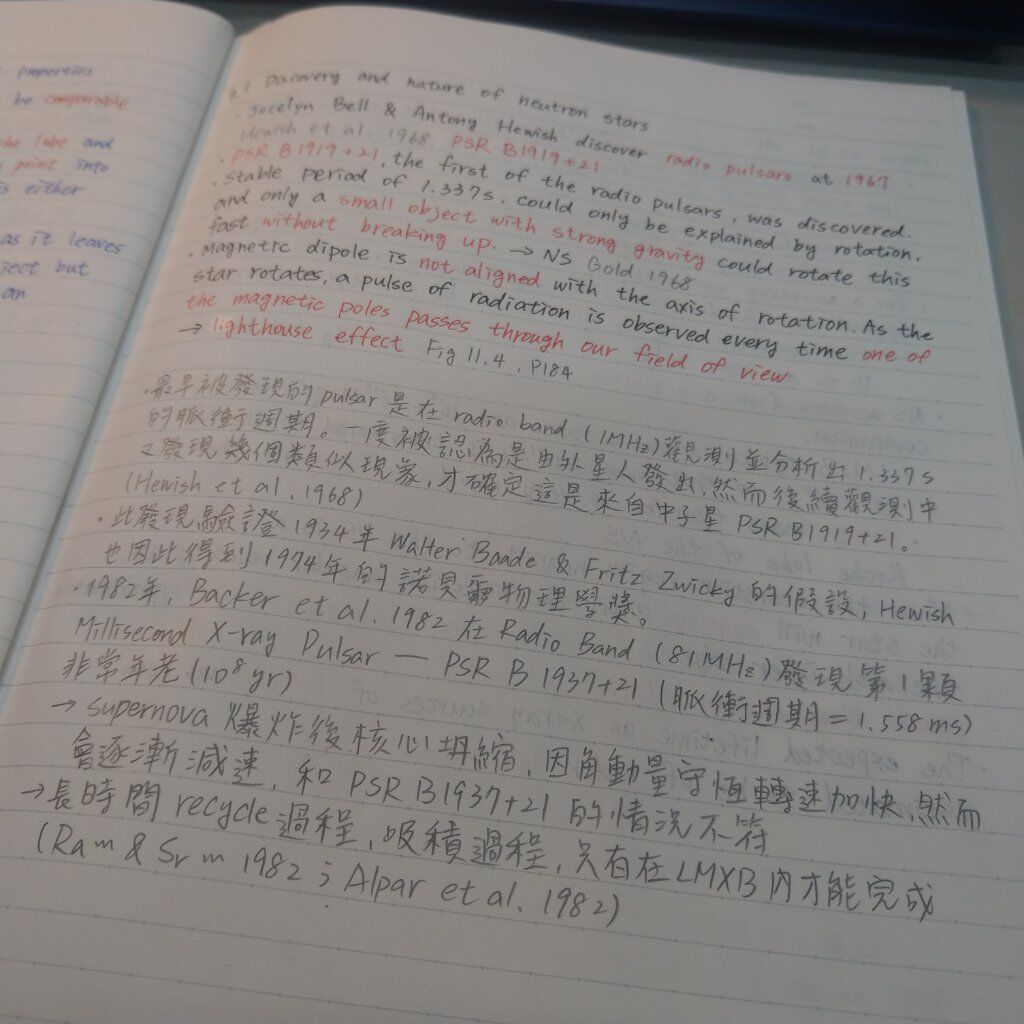 properties
be comparable
lobe and
point into
is either
as it leaves
ject but
an
Discovery and nature of neutron stars
· Jocelyn Bell & Antony Hewish discover radio pulsars at 1967
et al. 1968. PSR B1919+21
· PSR B1919+21, the first of the radio pulsars, was discovered.
· Stable period of 1.337s, could only be explained by rotation.
and only a small object with strong gravity could rotate this
fast without breaking up. → NS Gold 1968
· Magnetic dipole is not aligned with the axis of rotation. As the
star rotates, a pulse of radiation is observed every time one of
the magnetic poles passes through our field of view
→ lighthouse effect Fig 11.4, P184
· 最早被發現的pulsar是在 radio band (1MHz)觀測並分析出 1.337s
的脈衝週期。一度被認為是由外星人發出,然而後續觀測中
又發現幾個類似現象,才確定這是來自中子星 PSR B1919+21。
(Hewish et al. 1968)
· 此發現驗證1934年 Walter Baade & Fritz Zwicky 的假設; Hewish
也因此得到1974年的諾貝爾物理學獎。
· 1982年, Backer et al. 1982 在 Radio Band (81MHz)發現第1顆
Millisecond X-ray Pulsar — PSR B 1937+21 (脈衝週期=1.558 ms)
非常年老(10⁸ yr)
→ supernova 爆炸後核心坍縮,因角動量守恆轉速加快,然而
會逐漸減速,和 PSR B1937+21 的情況不符
→ 長時間 recycle過程,吸積過程,只有在LMXB內才能完成
(Ram & Srm 1982; Alpar et al. 1982)